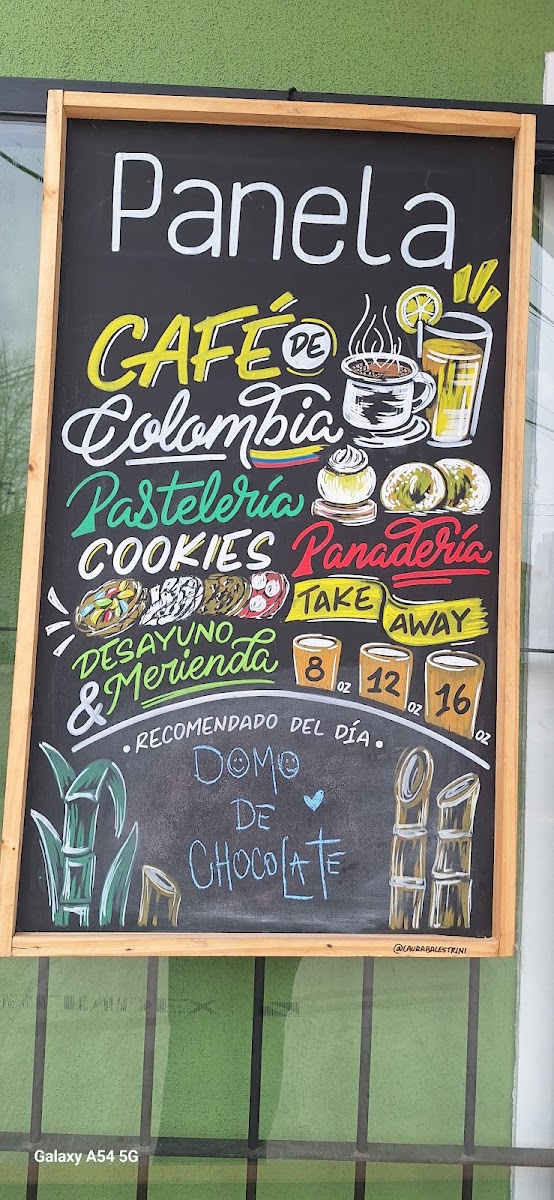 Panela
CAFÉ DE
Colombia
Pastelería
COOKIES
Panadería
TAKE AWAY
DESAYUNO
& Merienda
8 OZ 12 OZ 16 OZ
• RECOMENDADO DEL DÍA •
DOMO
DE
CHOCOLATE
@LAURABALESTRINI
Galaxy A54 5G